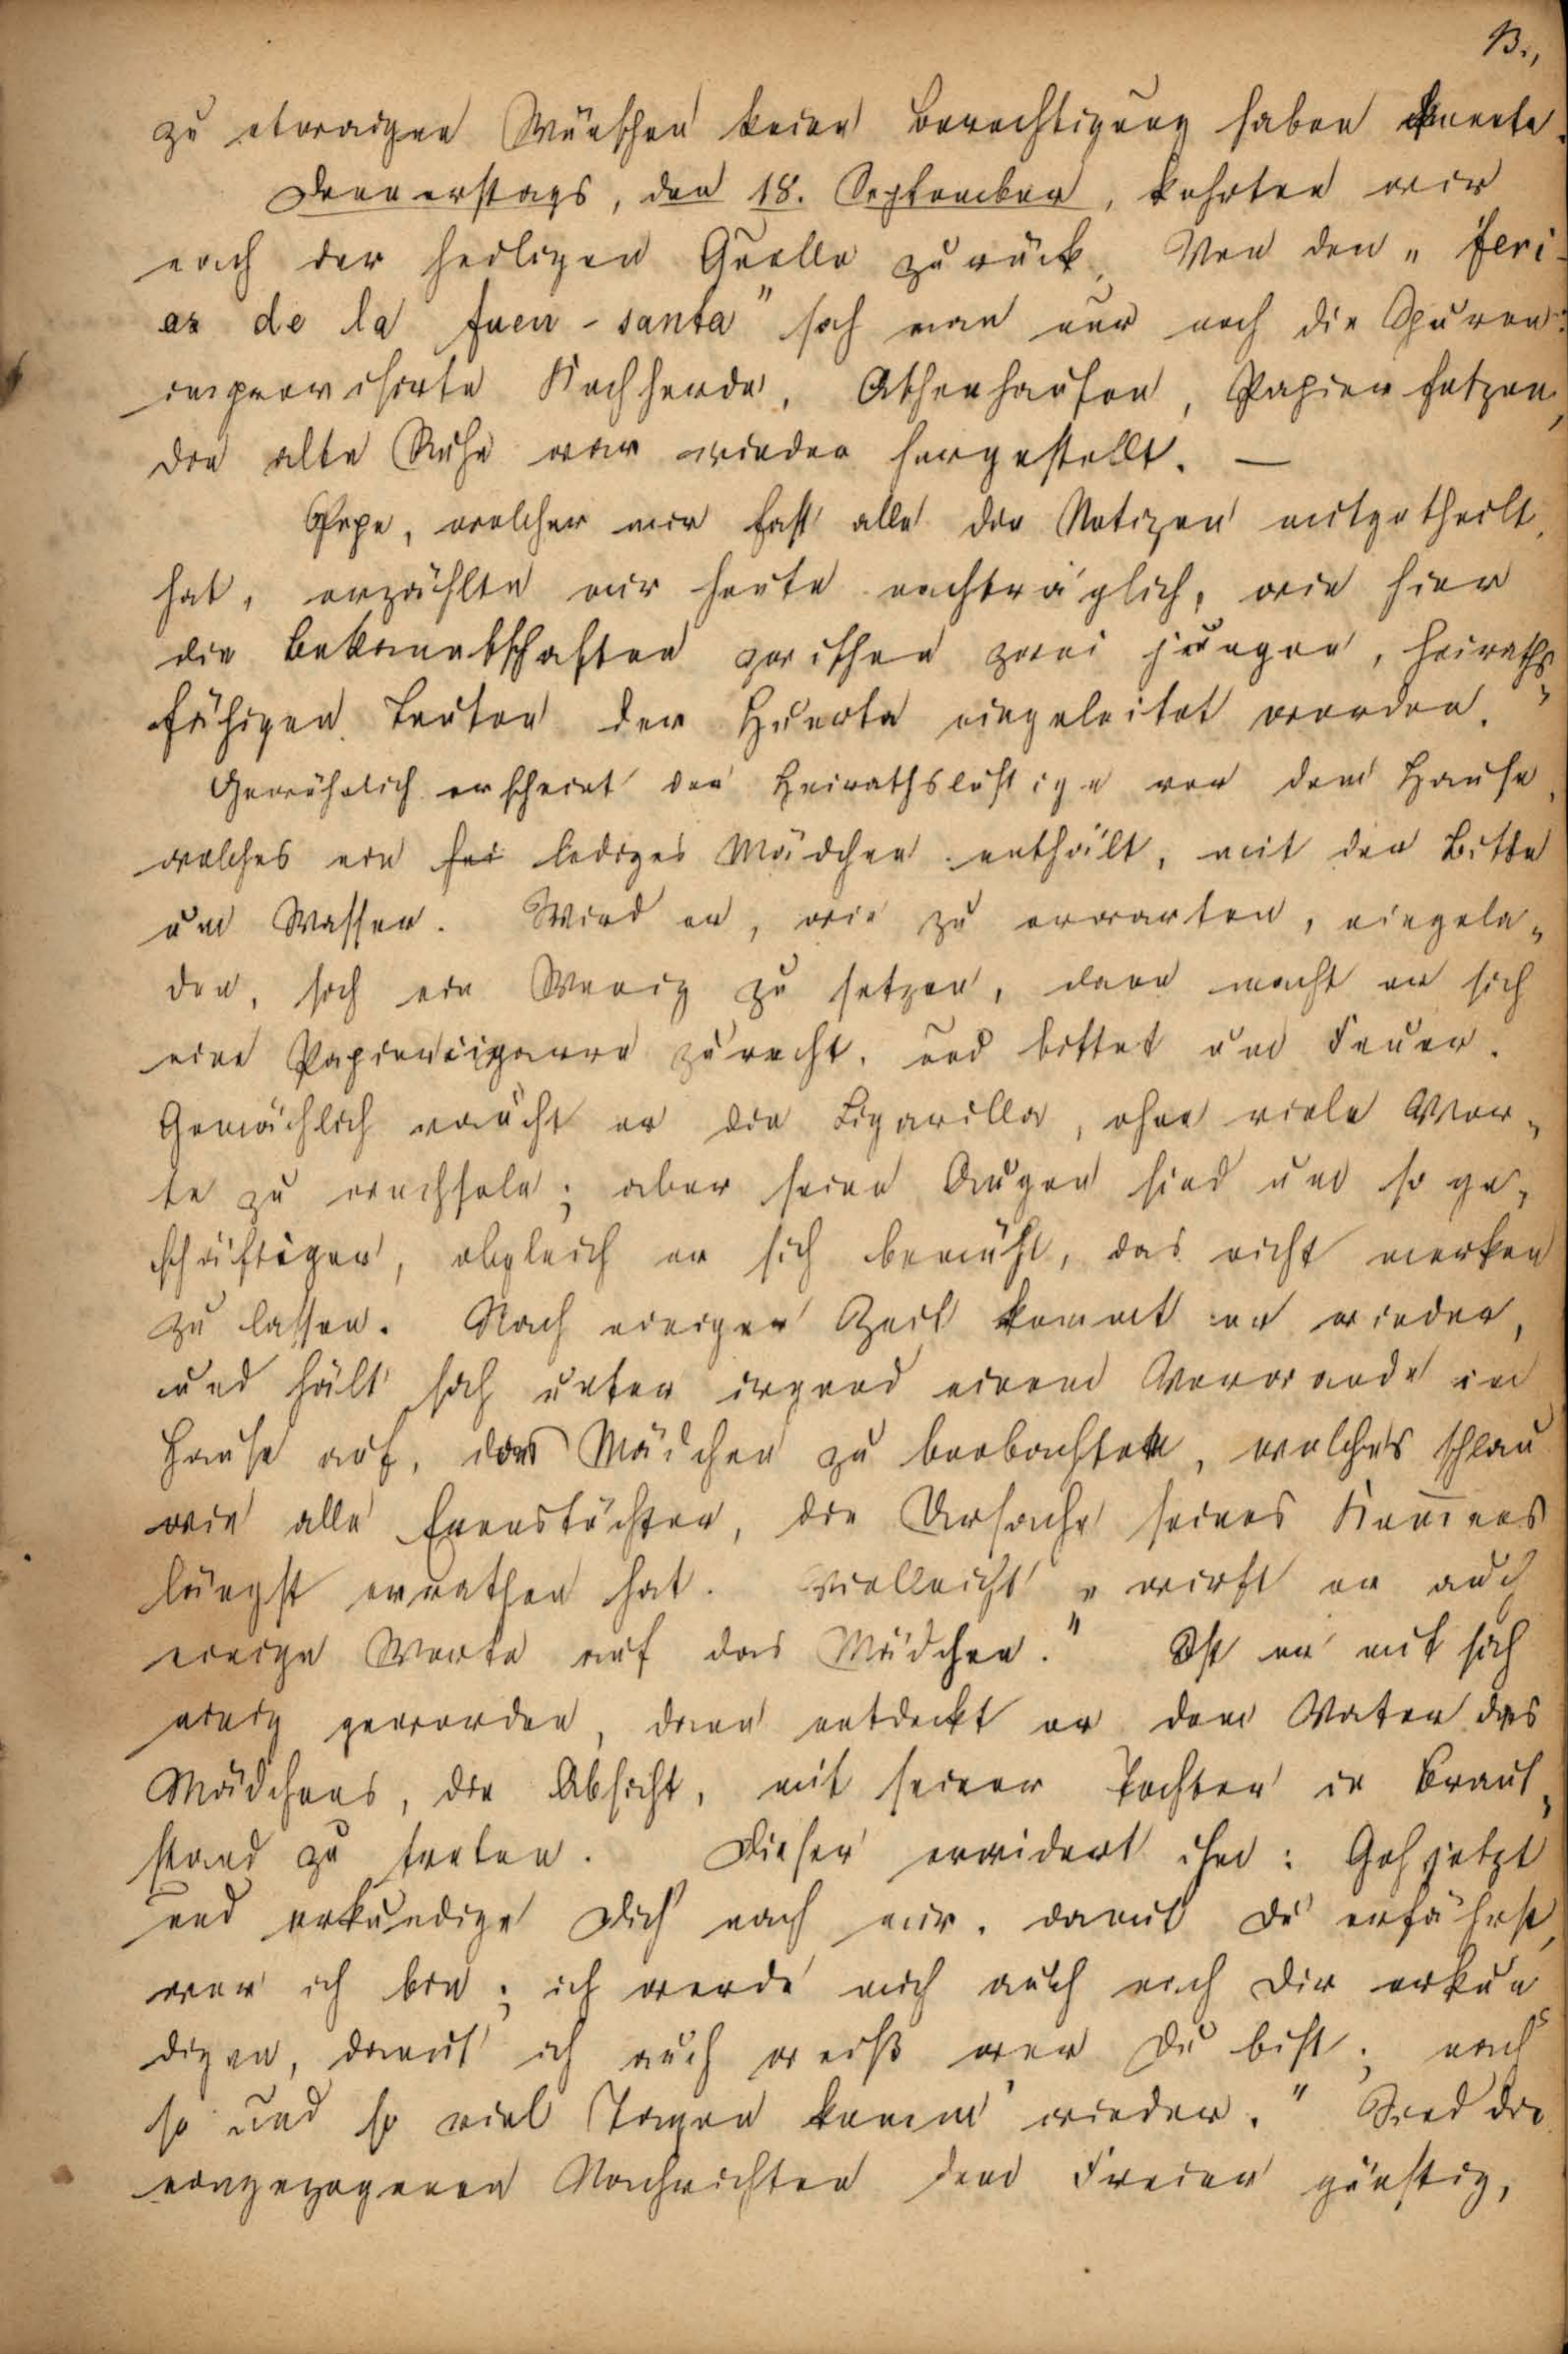 13.,
zu etwaigen Wünschen keine Berechtigung haben konnte.
Donnerstags, den 18. September, kehrten wir
nach der heiligen Quelle zurück. Von den „feri-
as de la fuen-santa" sah man nur noch die Spuren:
improvisirte Kochherde, Aschenhaufen, Papierfetzen,
die alte Ruhe war wieder hergestellt. —
Pepe, welcher mir fast alle die Notizen mitgetheilt
hat, erzählte mir heute nachträglich, wie hier
die Bekanntschaften zwischen zwei jungen, heiraths
fähigen Leuten der Huerta eingeleitet werden."
Gewöhnlich erscheint der Heirathslustige vor dem Hause,
welches ein lediges Mädchen enthält, mit der Bitte
um Wasser. Wird er, wie zu erwarten, eingela-
den, sich ein Wenig zu setzen, dann macht er sich
eine Papiercigarre zurecht, und bittet um Feuer.
Gemächlich raucht er die Cigarilla, ohne viele Wor-
te zu wechseln; aber seine Augen sind um so ge-
schäftiger, obgleich er sich bemüht, das nicht merken
zu lassen. Nach einiger Zeit kommt er wieder,
und hält sich unter irgend einem Vorwande im
Hause auf, das Mädchen zu beobachten, welches schlau
wie alle Evenstöchter, die Ursache seines Kom̅ens
längst errathen hat. Vielleicht „wirft er auch
einige Worte auf das Mädchen." Ist er mit sich
einig geworden, dann entdeckt er dem Vater des
Mädchens, die Absicht, mit seiner Tochter in Braut-
stand zu treten. Dieser erwidert ihm: Geh jetzt
und erkundige Dich nach mir, damit Du erfährst,
wer ich bin; ich werde mich auch nach Dir erkun
digen, damit ich auch weiß wer Du bist; nach
so und so viel Tagen komm wieder." Sind die
eingezogenen Nachrichten dem Freier günstig,